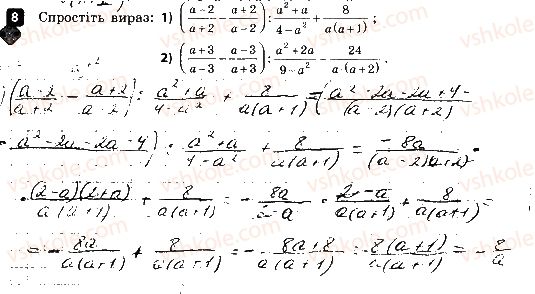 8 Спростіть вираз: 1) ((a-2)/(a+2) - (a+2)/(a-2)) : (a²+a)/(4-a²) + 8/(a(a+1)) ;
2) ((a+3)/(a-3) - (a-3)/(a+3)) : (a²+2a)/(9-a²) - 24/(a·(a+2)) .
) ((a-2)/(a+2) - (a+2)/(a-2)) : (a²+a)/(4-a²) + 8/(a(a+1)) = (a²-2a-2a+4-/(a-2)(a+2)
- a²-2a-2a-4) : (a²+a)/(4-a²) + 8/(a(a+1)) = -8a/((a-2)(a+2)) ·
· (2-a)(2+a)/(a(a+1)) + 8/(a(a+1)) = - 8a/(2-a) · (2-a)/(a(a+1)) + 8/(a(a+1)) =
= - 8a/(a(a+1)) + 8/(a(a+1)) = - (8a+8)/(a(a+1)) : 8(a+1)/(a(a+1)) = - 8/a
vshkole.com